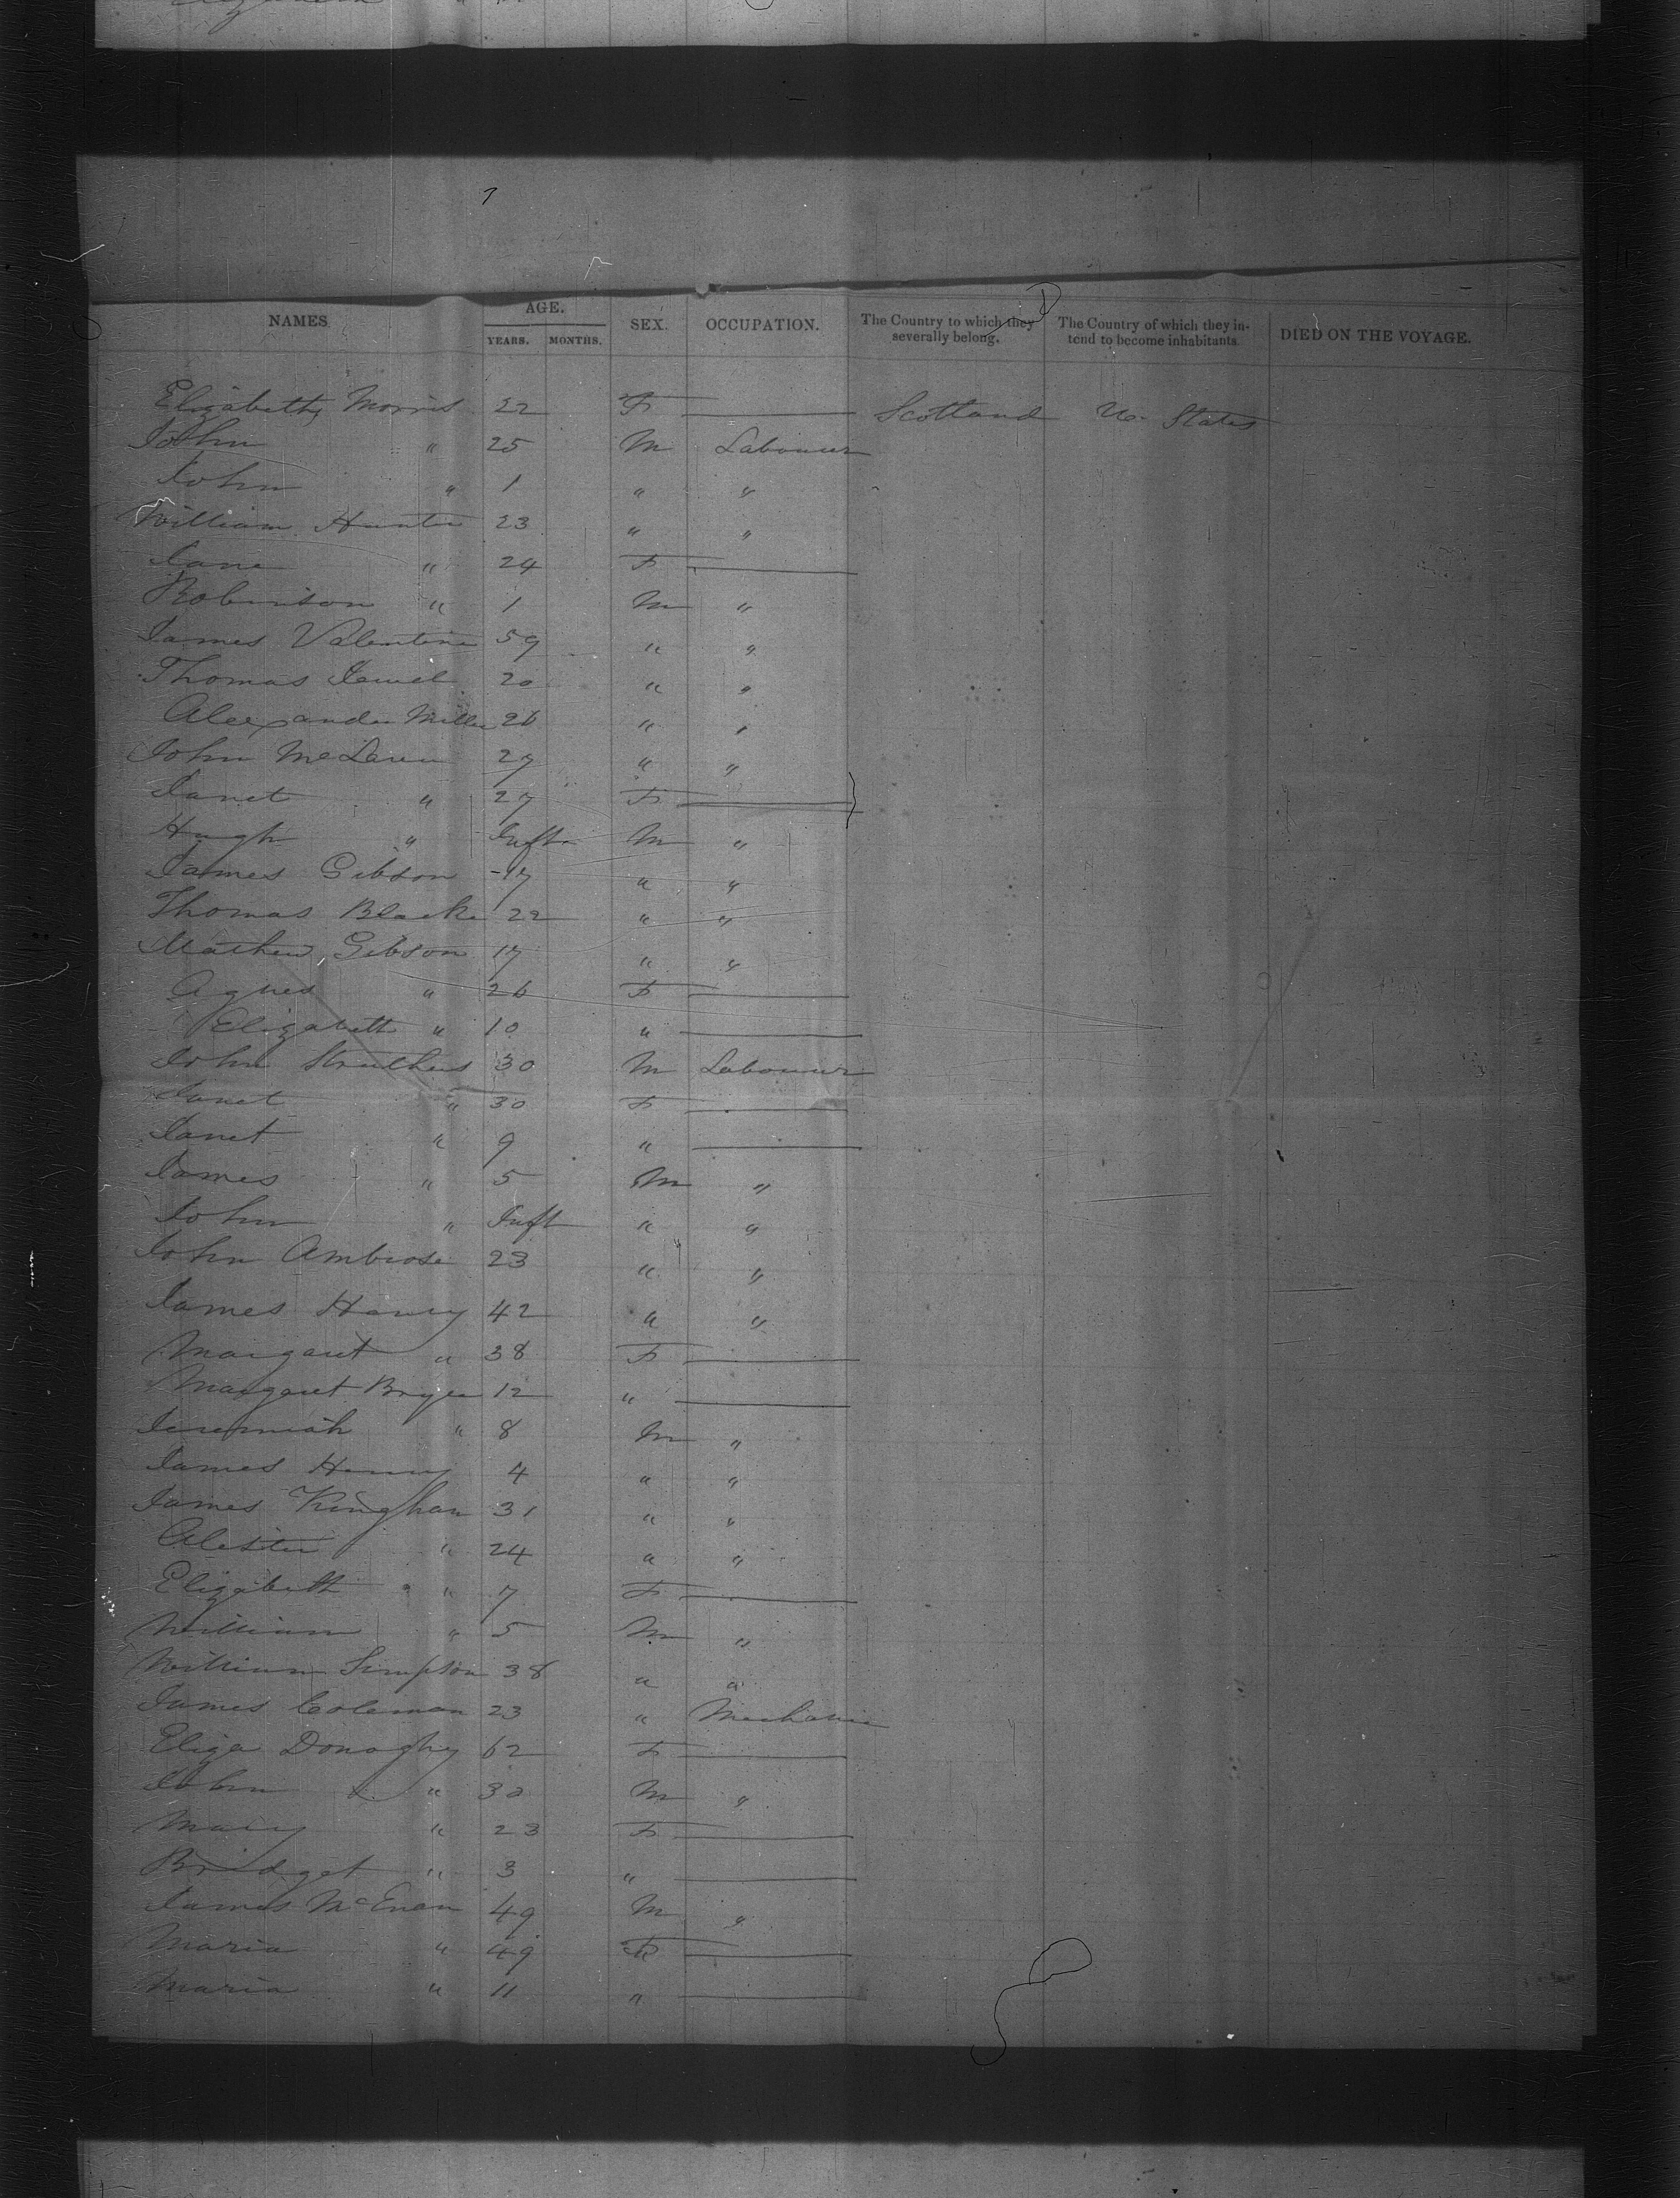 NAMES AGE. YEARS. MONTHS. SEX. OCCUPATION. The Country to which they severally belong. The Country of which they intend to become inhabitants. DIED ON THE VOYAGE.
Elizabeth Morris 22 F —— Scotland U. States
John " 25 M Labourer
John " 1 " "
William Hunter 23 " "
Jane " 24 F ——
Robinson " 1 M "
James Valentine 59 " "
Thomas 20 " "
Alexander Miller 26 " "
John McLaren 27 " "
Janet " 27 F ——
Hugh " Inft. M "
James Gibson 17 " "
Thomas Blacke 22 " "
Mathew Gibson 17 " "
Agnes " 26 F ——
Elizabeth " 10 " ——
John Struthers 30 M Labourer
Janet " 30 F ——
Janet " 9 " ——
James " 5 M "
John " Inft " "
John Ambrose 23 " "
James Henry 42 " "
Margaret " 38 F ——
Margaret 12 " ——
Jeremiah " 8 M "
James Henry 4 " "
James Kinghan 31 " "
Alester " 24 " "
Elizabeth " 7 F ——
William " 5 M "
William Simpson 38 " "
James Coleman 23 " Mechanic
Eliza Donoghy 62 F ——
John " 30 M "
Mary " 23 F ——
Bridget " 3 " ——
James McEnan 49 M "
Maria " 49 F ——
Maria " 11 " ——